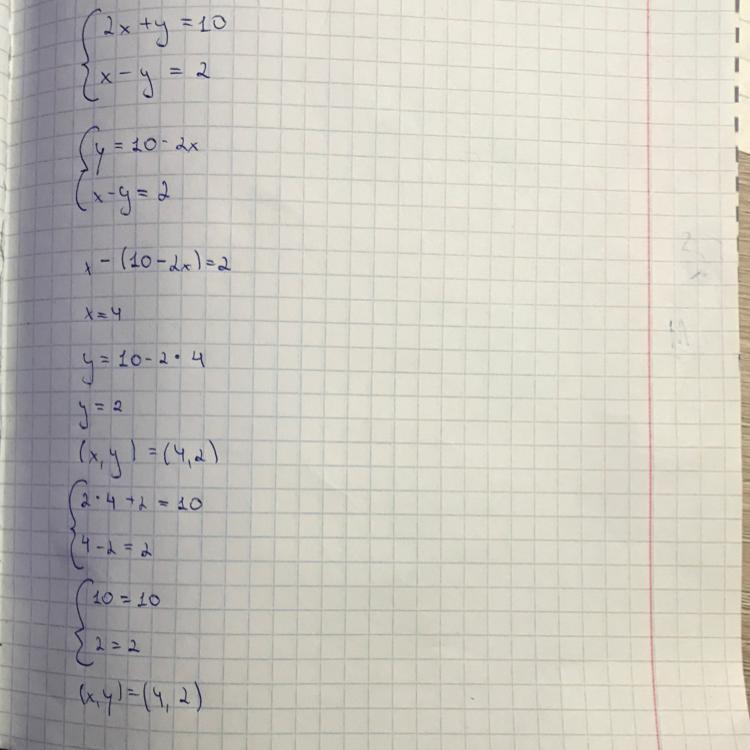 2x + y = 10
x - y = 2
y = 10 - 2x
x - y = 2
x - (10 - 2x) = 2
x = 4
y = 10 - 2 · 4
y = 2
(x, y) = (4, 2)
2 · 4 + 2 = 10
4 - 2 = 2
10 = 10
2 = 2
(x, y) = (4, 2)